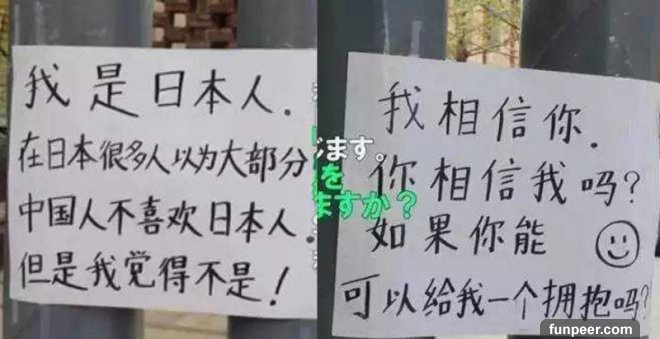 我是日本人.
在日本很多人以为大部分
中国人不喜欢日本人.
但是我觉得不是!
ます。
を
ますか？
我相信你.
你相信我吗?
如果你能
可以给我一个拥抱吗?
funpeer.com